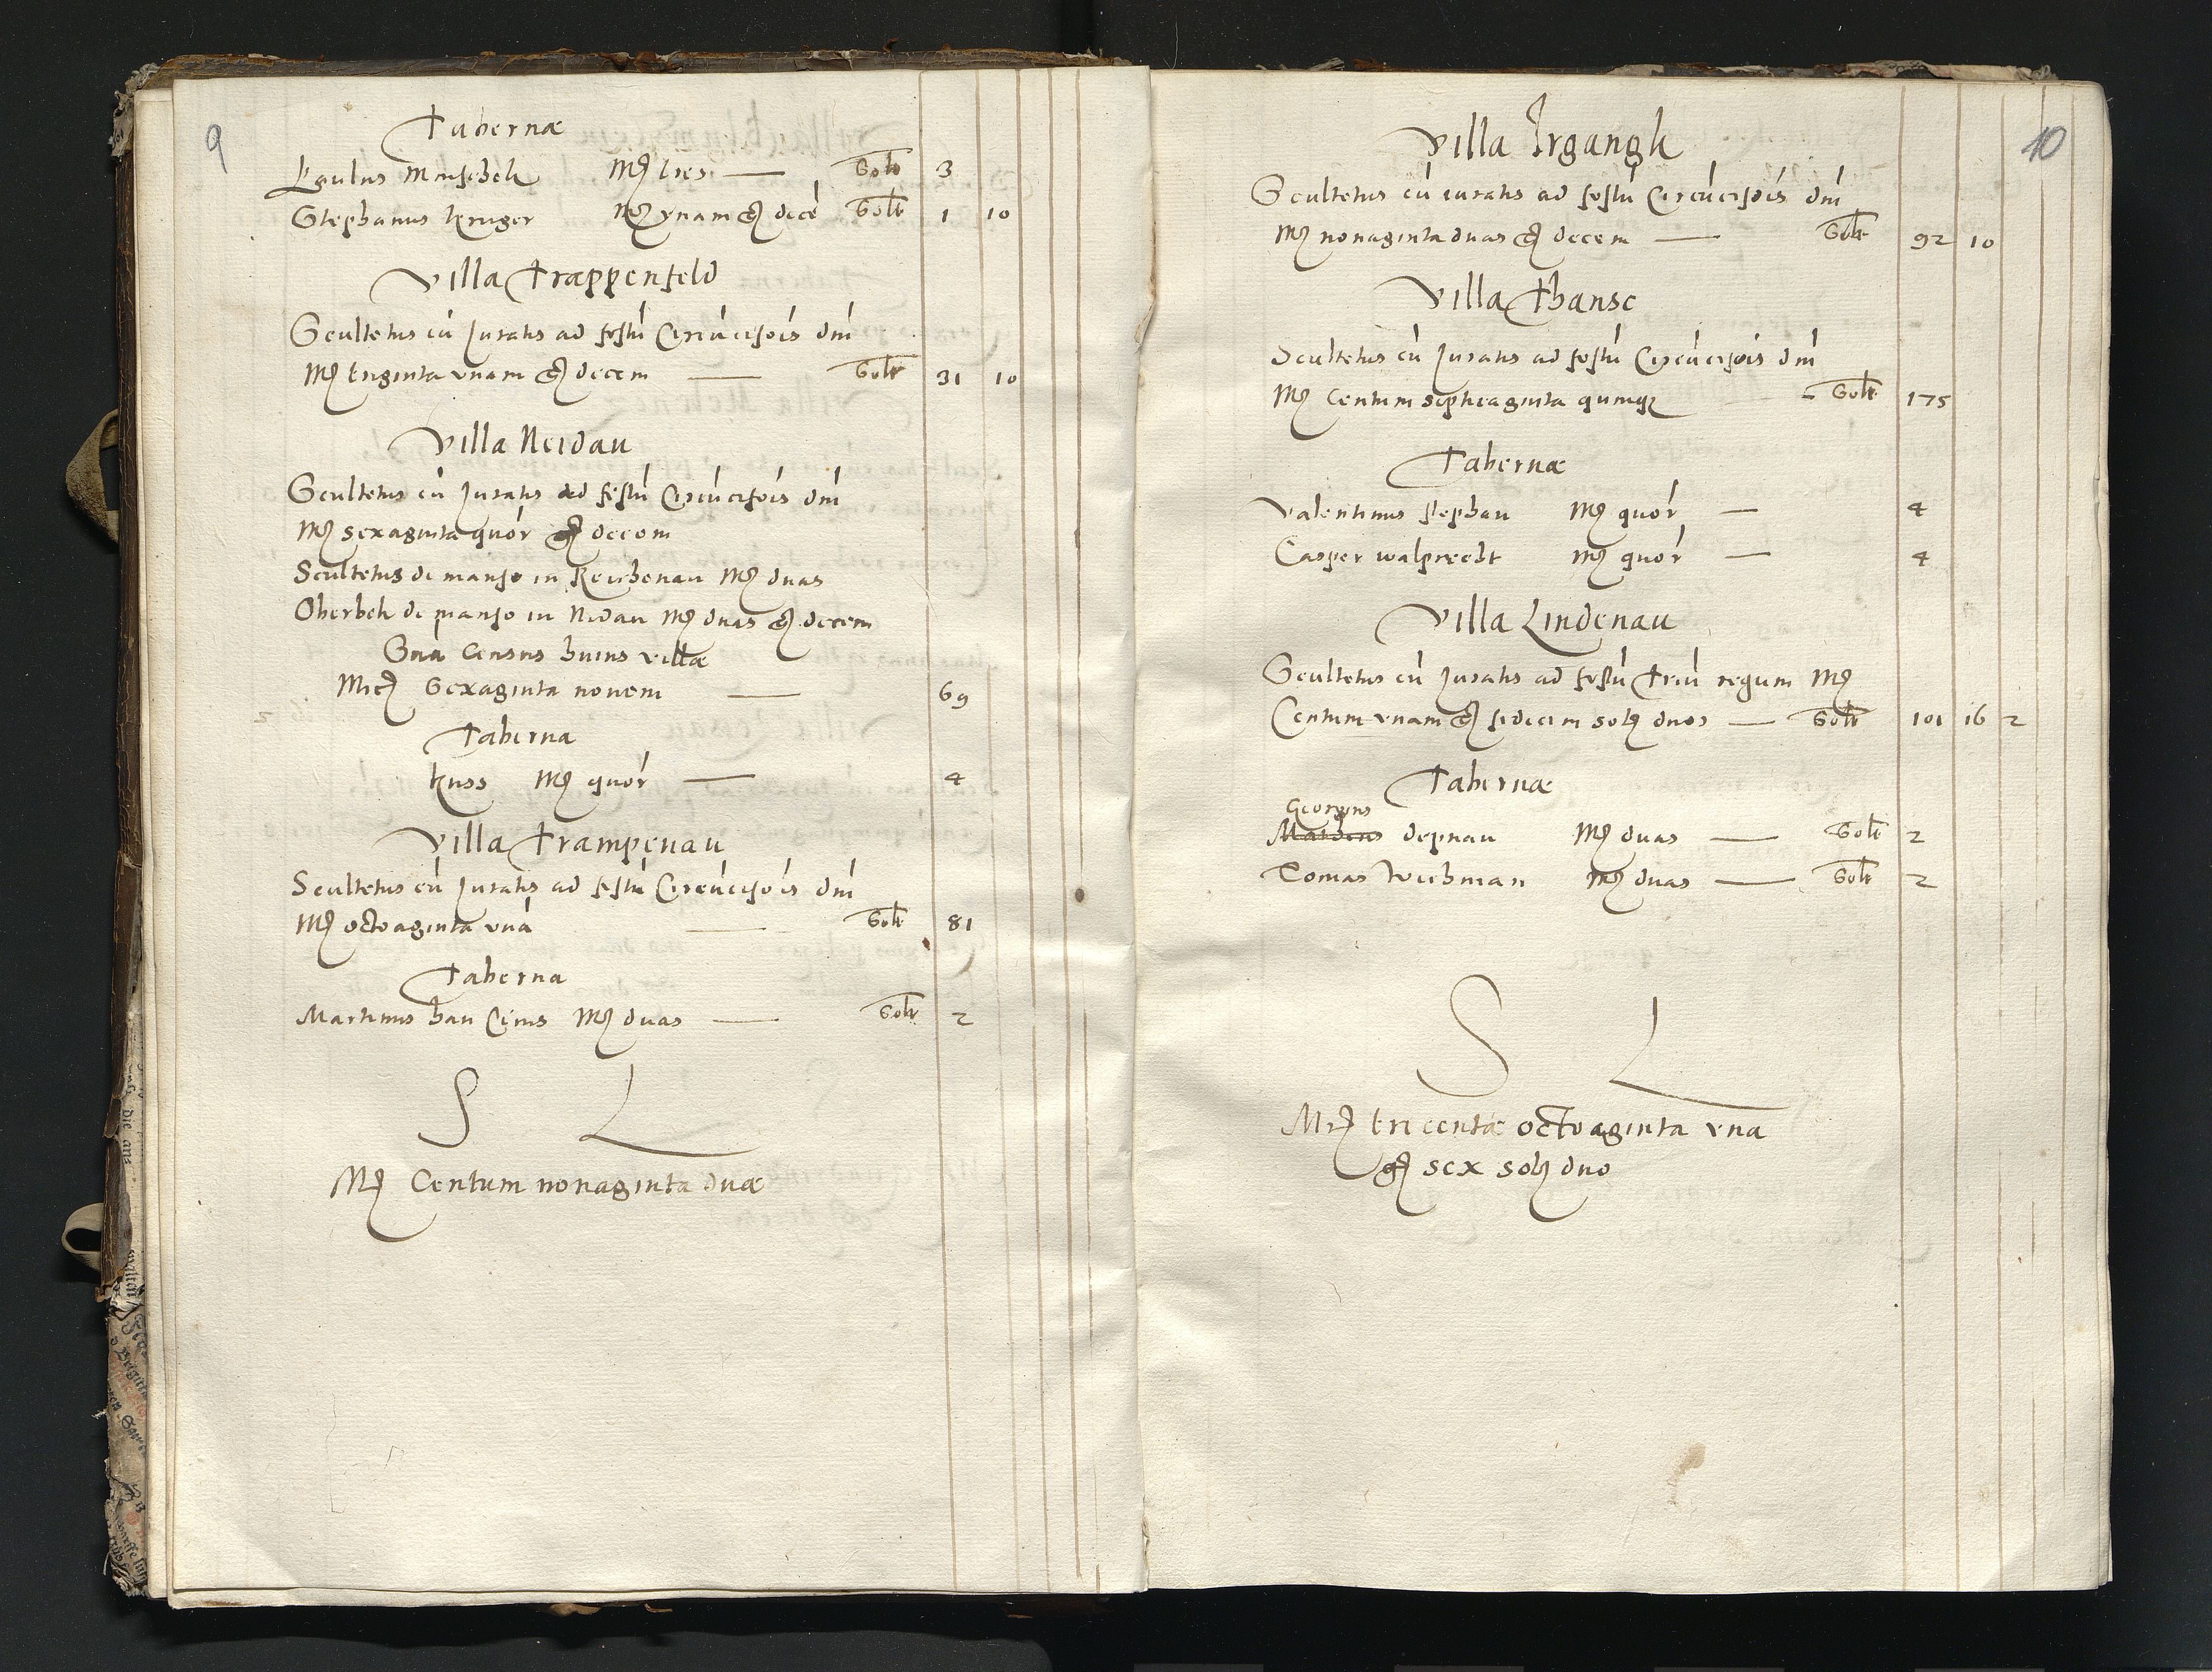 9
Tabernæ
Paulus Mruschek Mrc tres — Solt 3
Stephanus Kruger Mrc vnam gr decē Solt 1 10
Villa Trappenfeld
Scultetus cū Juratis ad festū Circūcisōis dnī
Mrc triginta vnam gr decem — Solt 31 10
Villa Neidau
Scultetus cū Juratis ad festū Circūcisōis dnī
Mrc sexaginta quōr gr decem
Scultetus de manso in Reichenau Mrc duas
Oberbek de manso in Neidau Mrc duas gr decem
Sūa Census huius villæ
Mrc Sexaginta novem — 69
Taberna
Kuss Mrc quōr — 4
Villa Trampenau
Scultetus cū Juratis ad festū Circūcisōis dnī
Mrc octoaginta vnā — Solt 81
Taberna
Martinus han Mrc duas — Solt 2
S L
Mrc Centum nonaginta duæ
10
Villa Irgangk
Scultetus cū iuratis ad festū Circūcisōis dnī
Mrc nonaginta duas gr decem — Solt 92 10
Villa Thanse
Scultetus cū Juratis ad festū Circūcisōis dnī
Mrc Centum septuaginta quinqz - Solt 175
Tabernæ
Valentinus stephan Mrc quōr — 4
Casper walprecht Mrc quōr — 4
Villa Lindenau
Scultetus cū Juratis ad festū Triū regum Mrc
Centum vnam gr sedecim solz duos — Solt 101 16 2
Tabernæ
Georgius
depnau Mrc duas — Solt 2
Tomas Wichman Mrc duas — Solt 2
S L
Mrc tricentæ octoaginta vna
gr sex solz duo